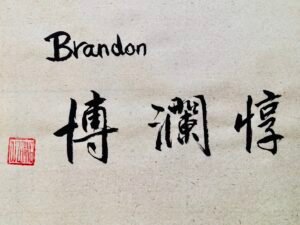 Brandon
博瀾惇